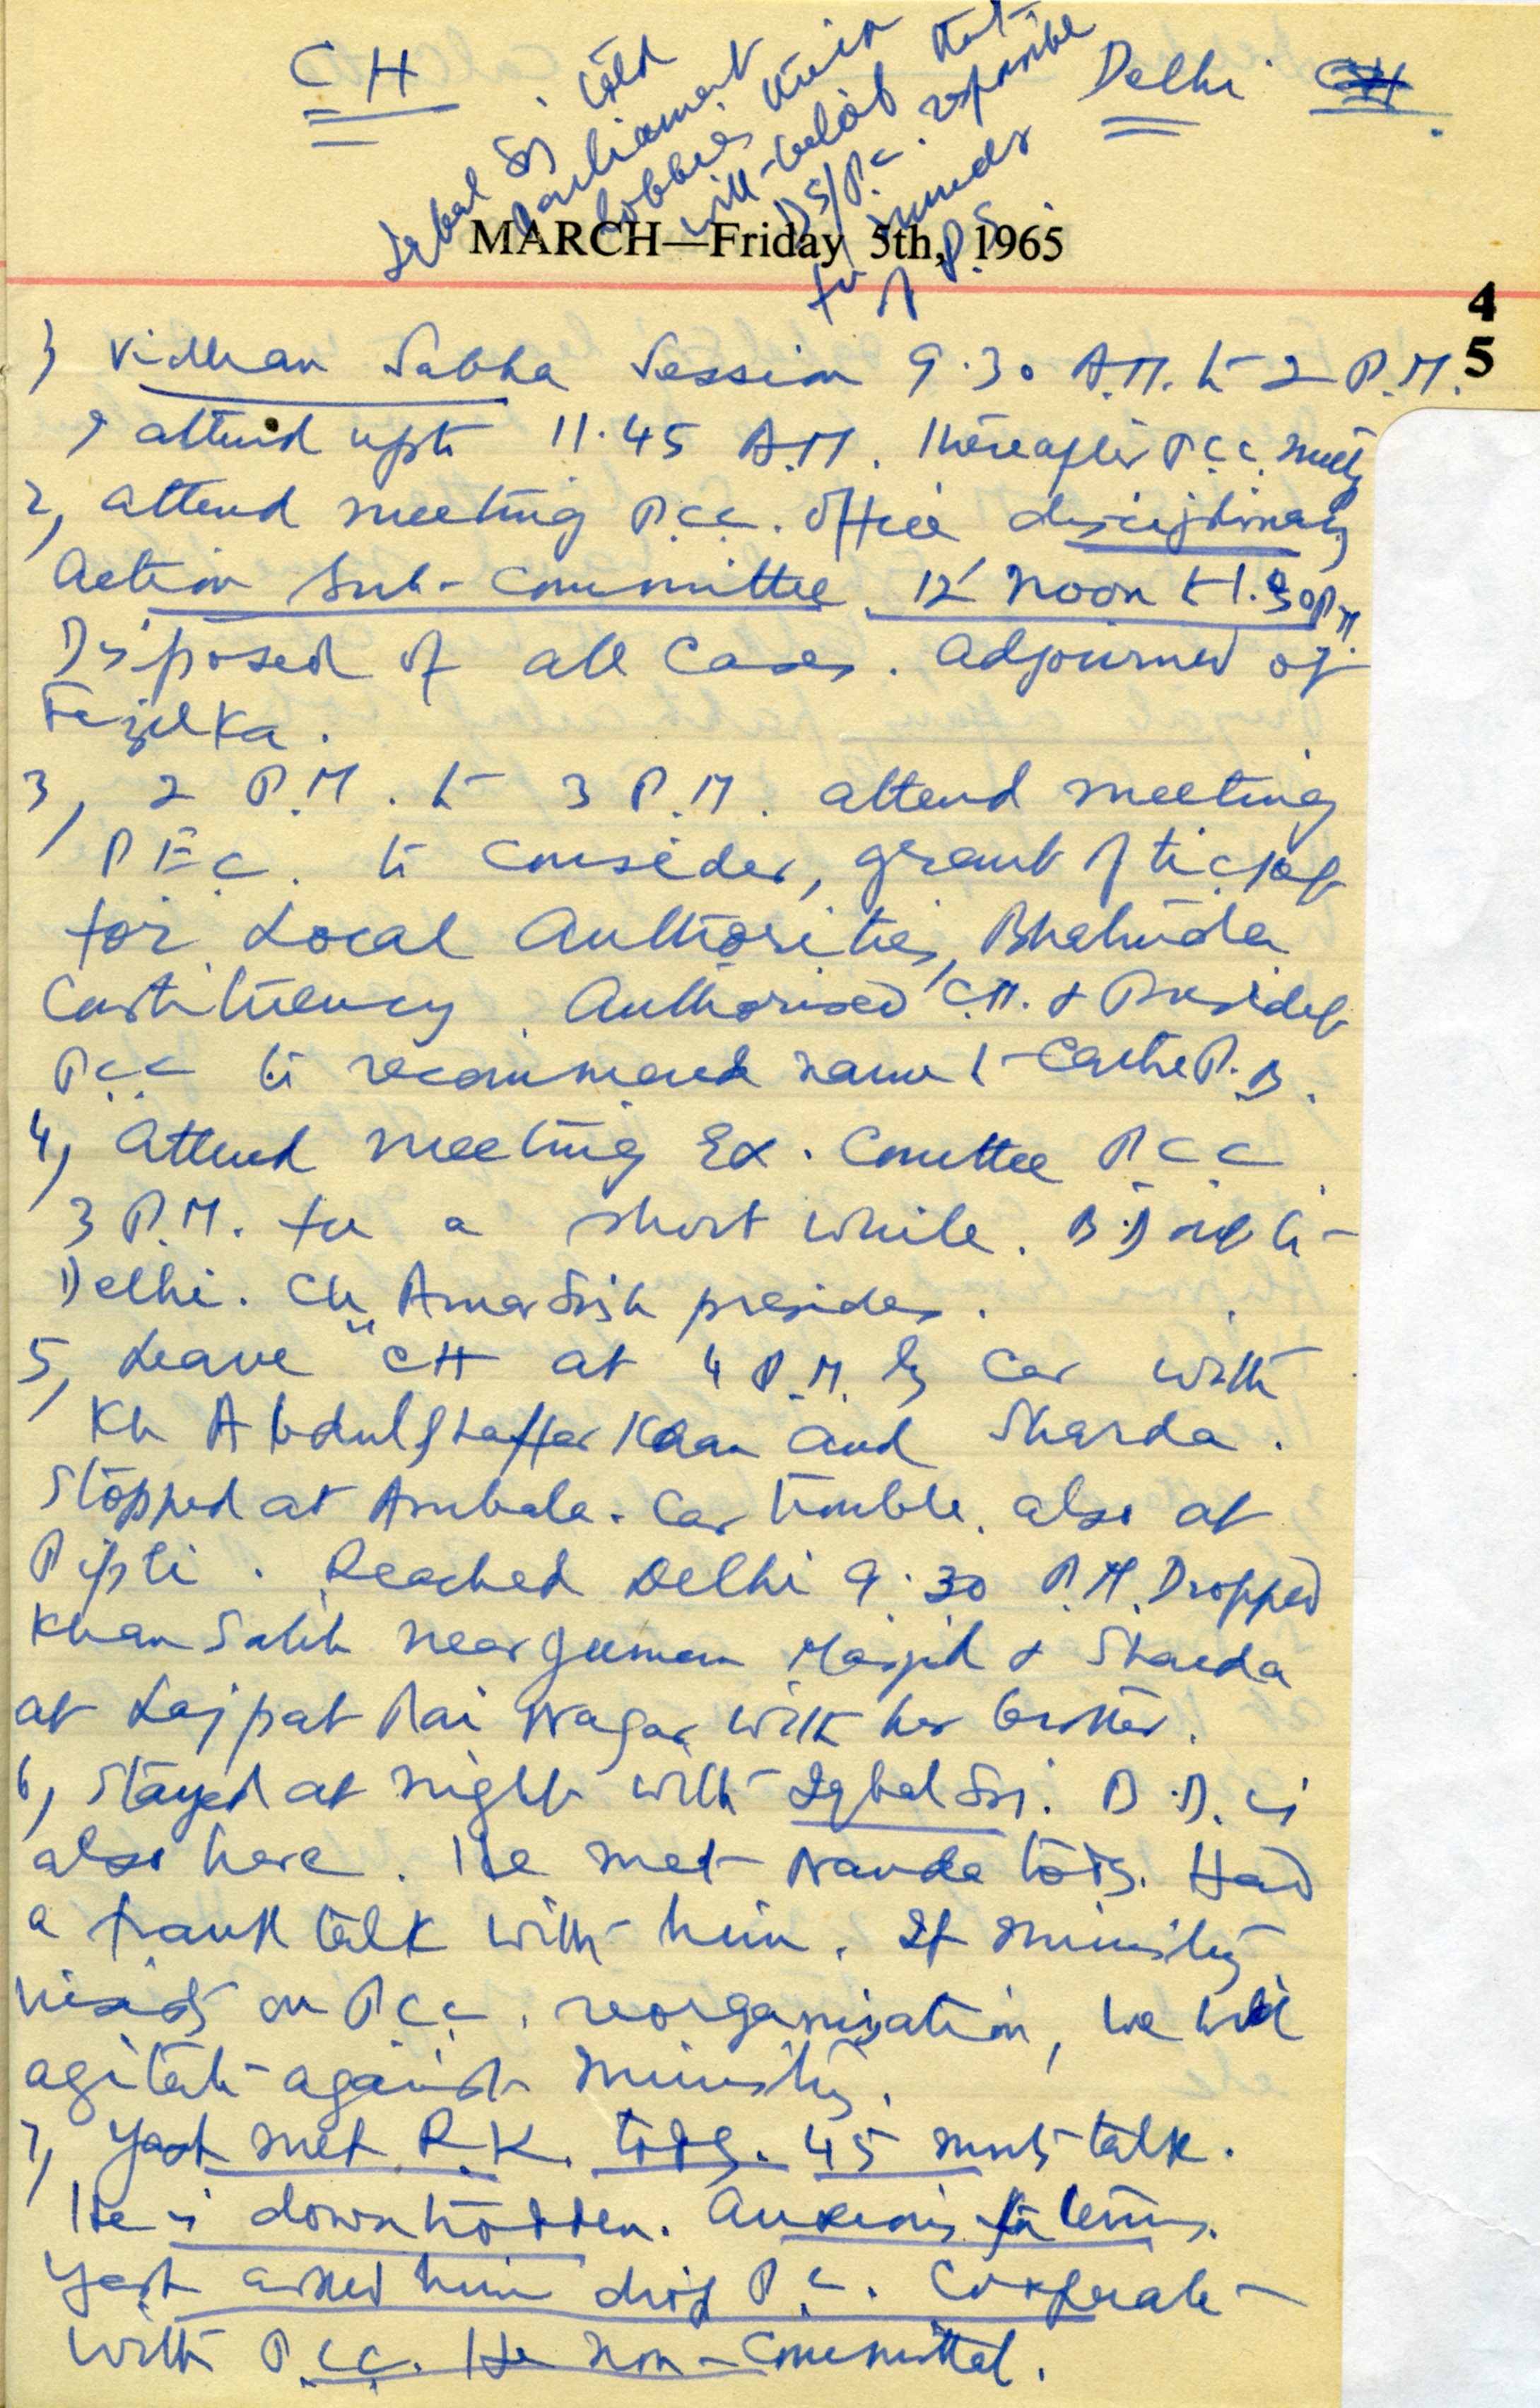 CH
Delhi
Iqbal Sn. told
Parliament
lobbies
will that
DS/P.C. responsible
for murder
of P.S.
MARCH—Friday 5th, 1965
4
5
1) Vidhan Sabha Session 9.30 A.M. to 2 P.M.
I attend upto 11.45 A.M. Thereafter P.C.C. meetg
2, attend meeting P.C.C. Office disciplinary
Action Sub-Committee 12 Noon to 1.30 P.M.
Disposed of all Cases. adjourned of
Fazilka.
3, 2 P.M. to 3 P.M. attend meeting
P.E.C. to consider, grant of ticket
for Local Authorities, Bhatinda
Constituency. Authorised C.M. & President
PCC to recommend name to Centre P.B.
4, Attend meeting Ex. Comittee P.C.C
3 P.M. for a short while. B.D
Delhi. Ch. Amar Singh presides.
5, Leave CH at 4 P.M. by Car with
Kh Abdul Ghaffar Khan and Sharda.
Stopped at Ambala. Car trouble. also at
Pipli. Reached Delhi 9.30 P.M. Dropped
Khan Sahib near Juma Masjid & Sharda
at Lajpat Rai Nagar with her brother.
6, Stayed at night with Iqbal Sn. B.D. is
also here. He met Nanda tody. Had
a frank talk with him. If ministry
insists on P.C.C. reorganisation, we will
agitate against ministry.
7, Yash met R.K. tody. 45 mnts talk.
He is downtrodden. Anxious for terms.
Yash asked him drop P.C. Cooperate
with P.C.C. He non-committal.